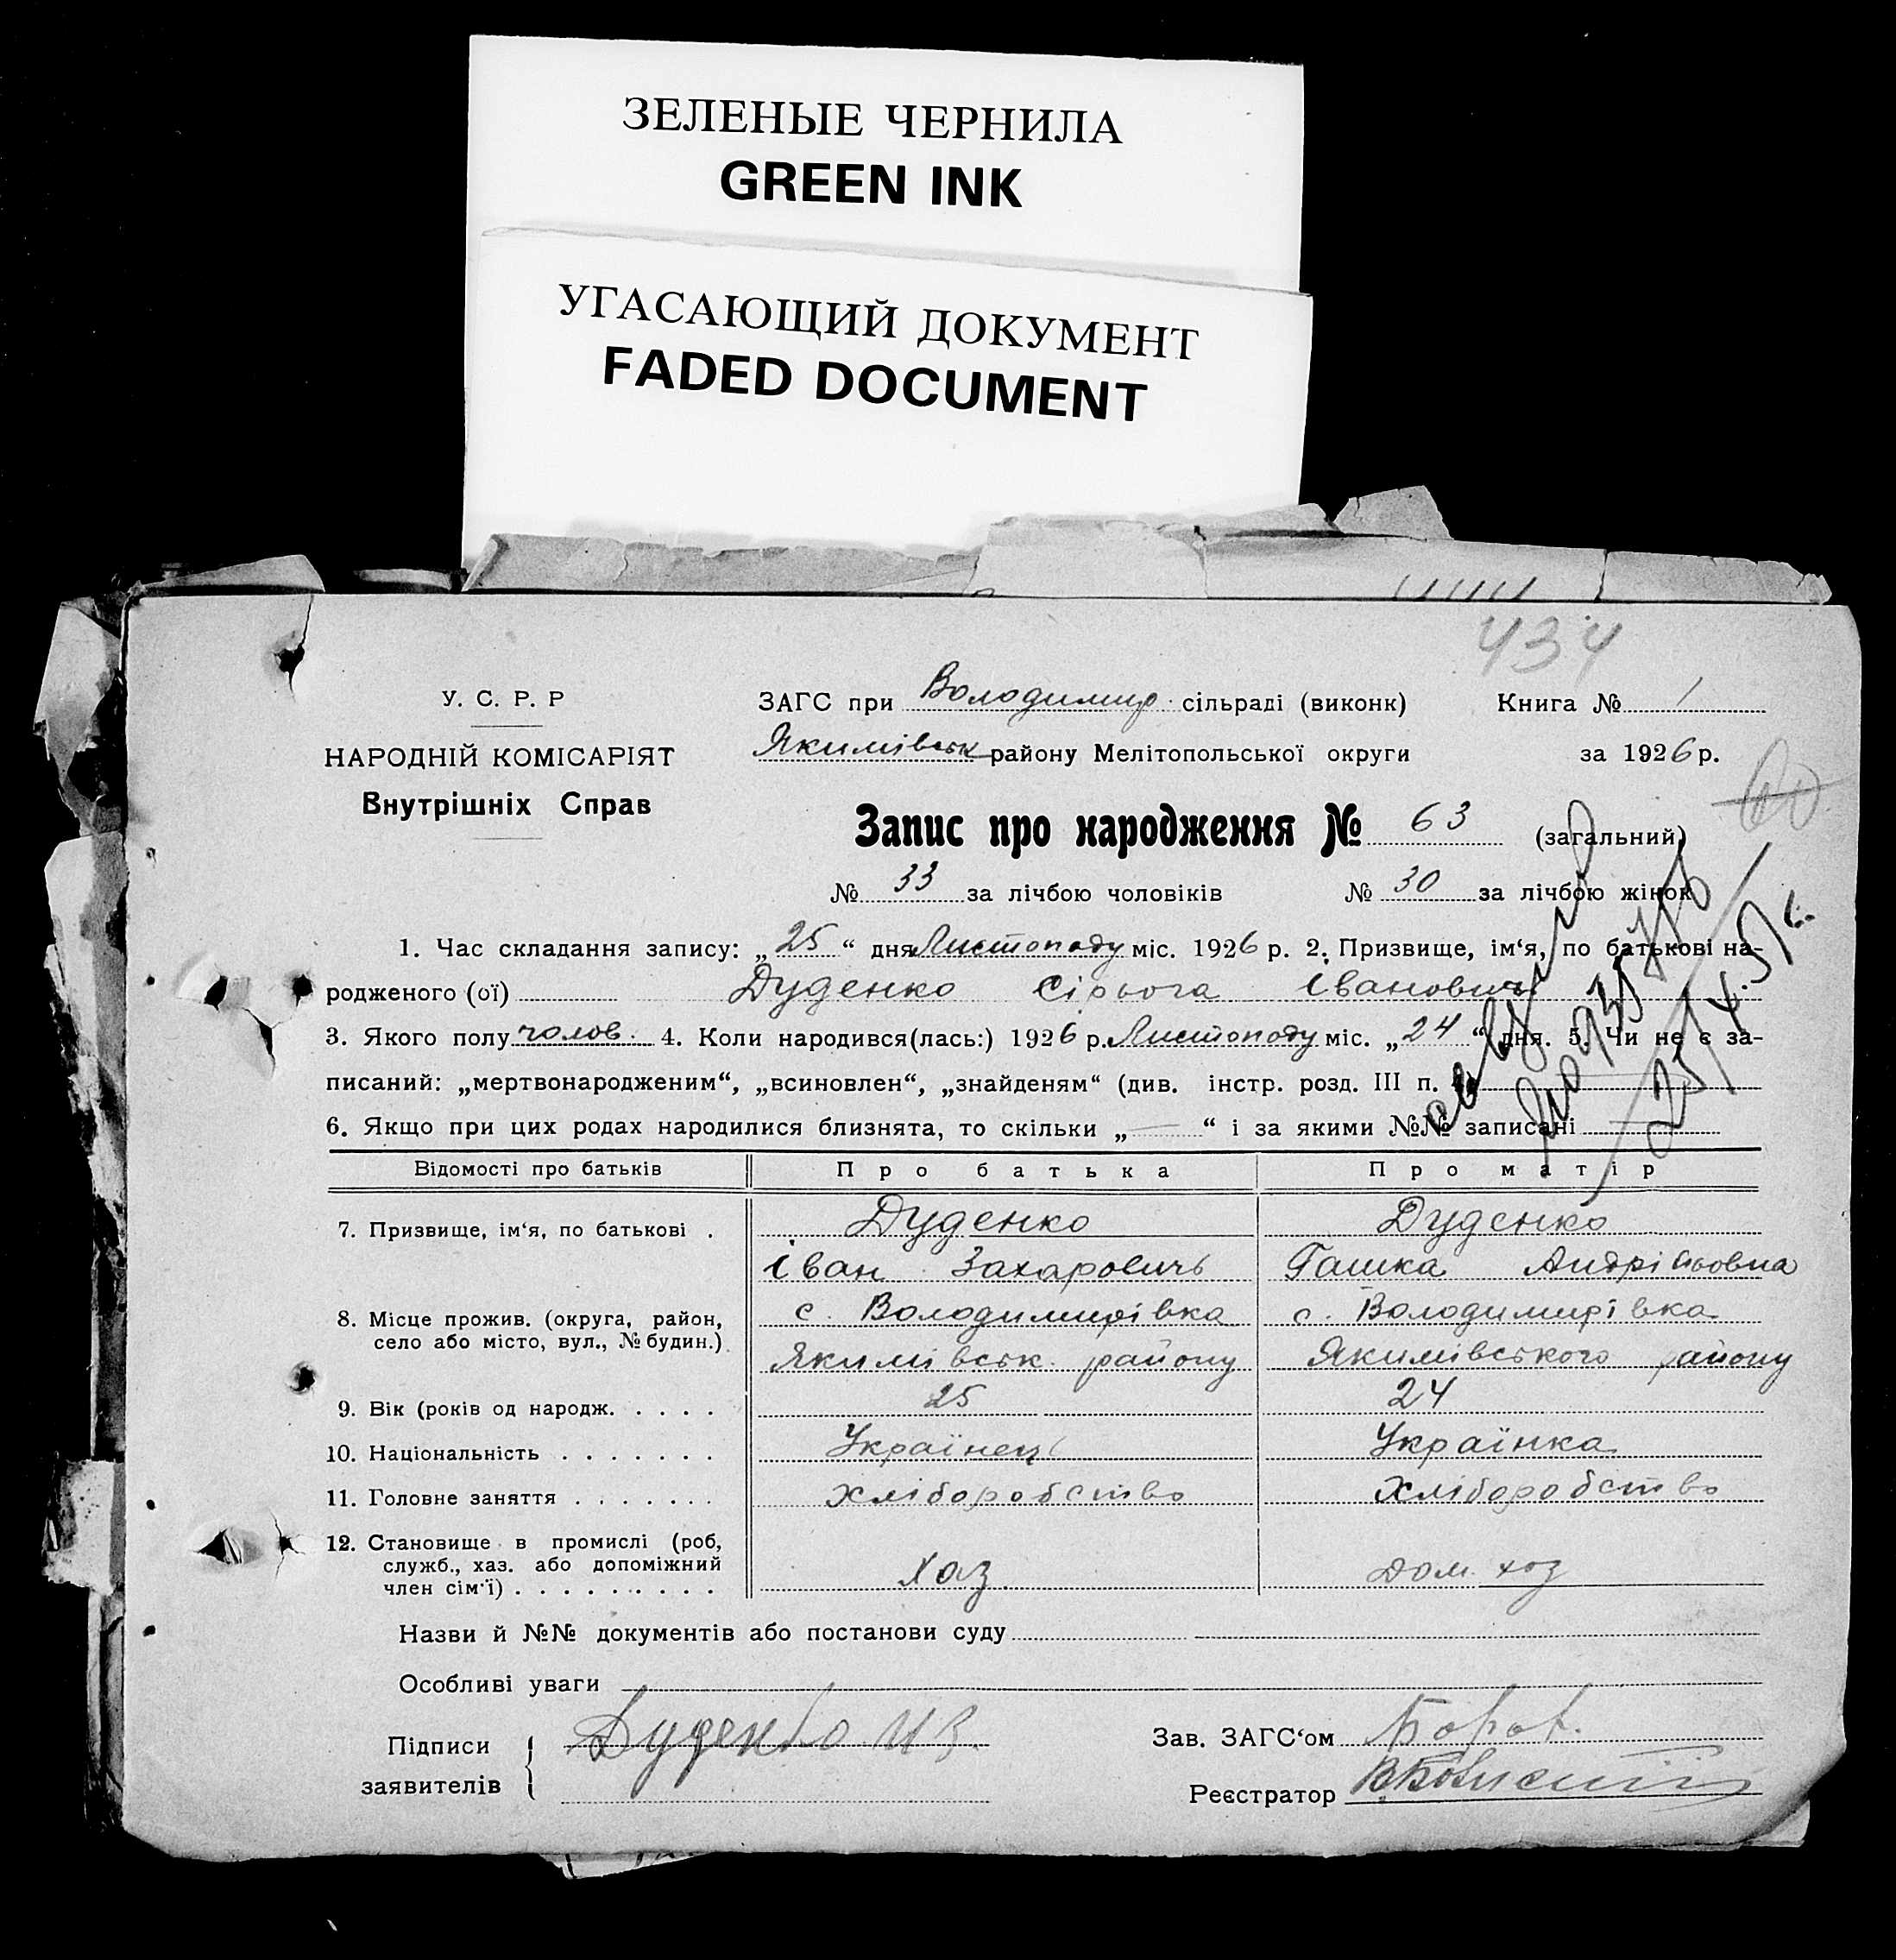 ЗЕЛЕНЫЕ ЧЕРНИЛА
GREEN INK
УГАСАЮЩИЙ ДОКУМЕНТ
FADED DOCUMENT
434
У. С. Р. Р
НАРОДНІЙ КОМІСАРІЯТ
Внутрішніх Справ
ЗАГС при Володимир. сільраді (виконк) Книга № 1
Якимівськ району Мелітопольської округи за 1926 р.
60
Запис про народження № 63 (загальний)
№ 33 за лічбою чоловіків № 30 за лічбою жінок
1. Час складання запису: „25“ дня Листопаду міс. 1926 р. 2. Призвище, ім‘я, по батькові на-
родженого (ої) Дуденко Сірьога Іванович
3. Якого полу чолов. 4. Коли народився(лась:) 1926 р. Листопаду міс. „24“ дня. 5. Чи не є за-
писаний: „мертвонародженим“, „всиновлен“, „знайденям“ (див. інстр. розд. III п.
6. Якщо при цих родах народилися близнята, то скільки „—“ і за якими №№ записані
Відомості про батьків Про батька Про матір
7. Призвище, ім‘я, по батькові . Дуденко Дуденко
Іван Захаровичь Гашка Андрійовна
8. Місце прожив. (округа, район, село або місто, вул., № будин.) с. Володимирівка с. Володимирівка
Якимівськ. району Якимівського району
9. Вік (років од народж. . . . . 25 24
10. Національність . . . . . . . Українець Українка
11. Головне заняття . . . . . . . Хліборобство Хліборобство
12. Становище в промислі (роб, служб., хаз. або допоміжний член сім‘ї) . . . . . . . . . хаз. дом. хоз
Назви й №№ документів або постанови суду
Особливі уваги
Підписи заявителів Дуденко И З.
Зав. ЗАГС‘ом
Реєстратор